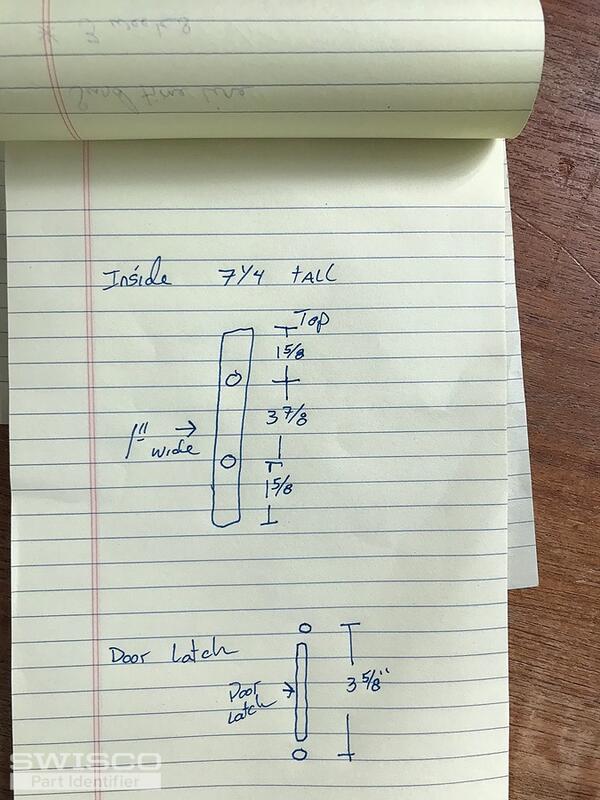 * 3 weeks
Send time line
Inside 7 1/4 tALL
Top
1 5/8
3 7/8
1" wide
1 5/8
Door Latch
Door
Latch
3 5/8"
SWISCO
Part Identifier